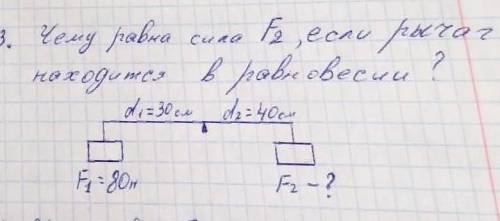 3. Чему равна сила F2, если рычаг
находится в равновесии?
d1=30см d2=40см
F1=80н F2-?